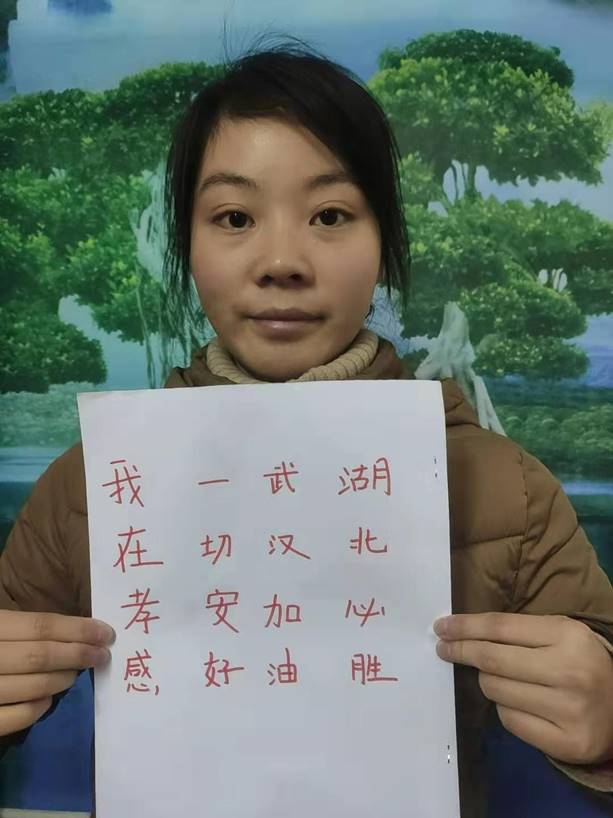 我在孝感
一切安好
武汉加油
湖北必胜